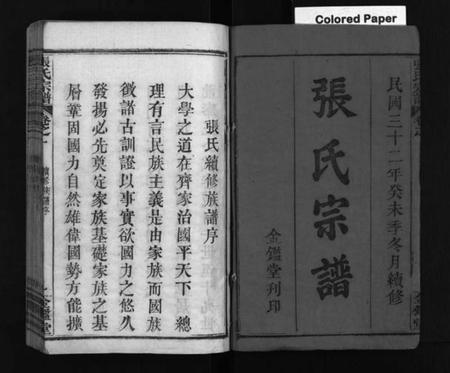 Colored Paper
民國三十二年癸未季冬月續修
張氏宗譜
金鑑堂刋印
張氏續修族譜序
大學之道在齊家治國平天下 總
理有言民族主義是由家族而國族
徵諸古訓證以事實欲國力之悠久
發揚必先奠定家族基礎家族之基
層鞏固國力自然雄偉國勢方能擴
張氏宗譜
卷之一
續修族譜序
金鑑堂